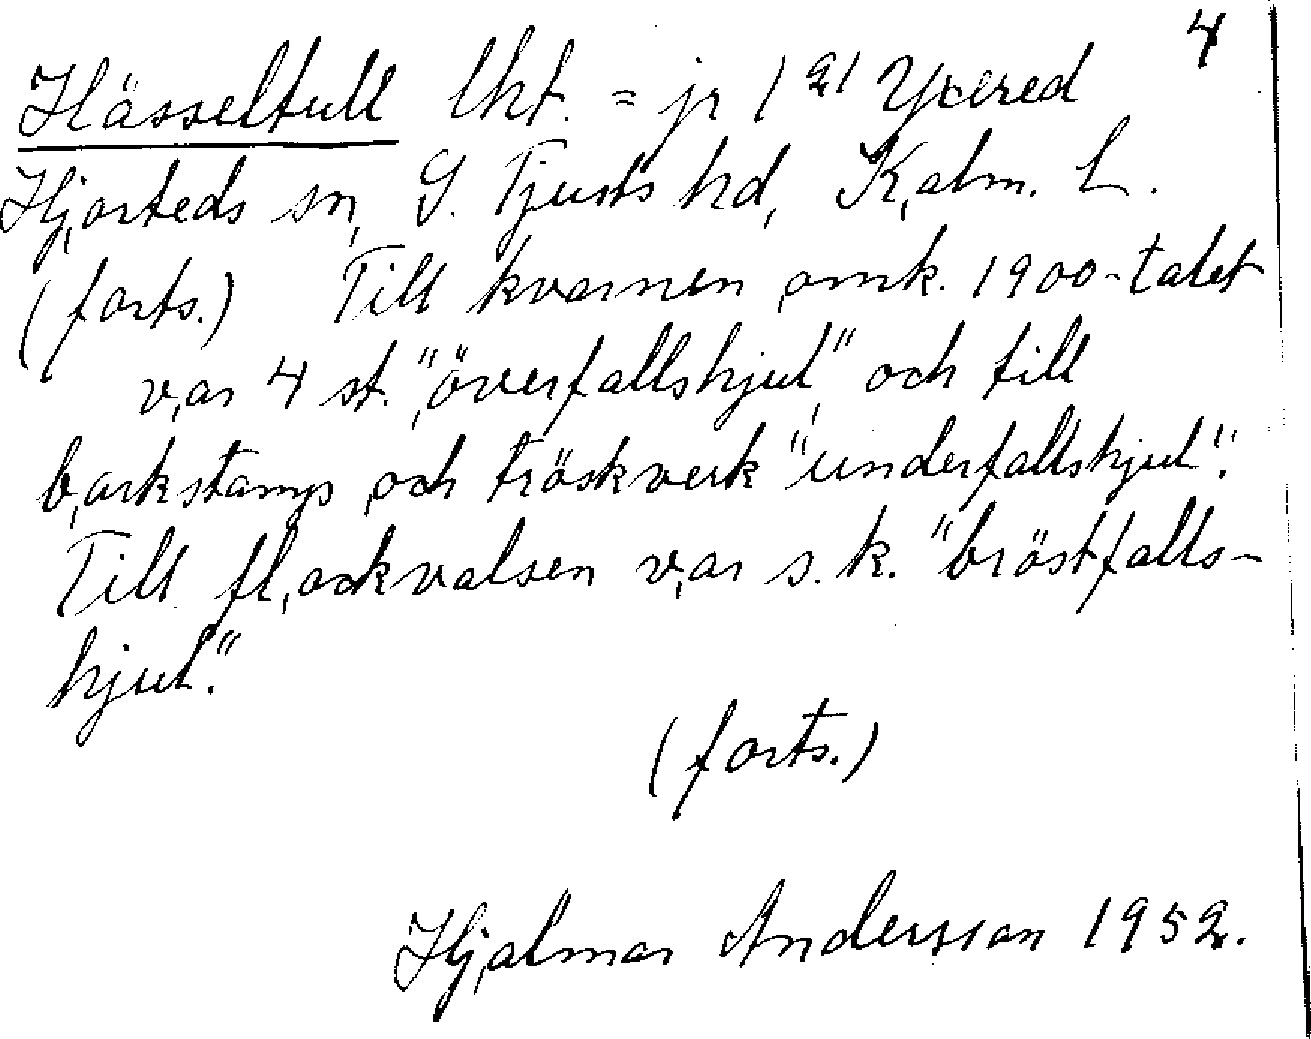 4
Hässeltull lht. = jr 1 21 Yxered
Hjorteds sn, S. Tjusts hd, Kalm. L.
(forts.) Till kvarnen omk. 1900-talet
var 4 st. "överfallshjul" och till
barkstamp och tröskverk "underfallshjul".
Till flockvalsen var s.k. "bröstfalls-
hjul".
(forts.)
Hjalmar Andersson 1952.